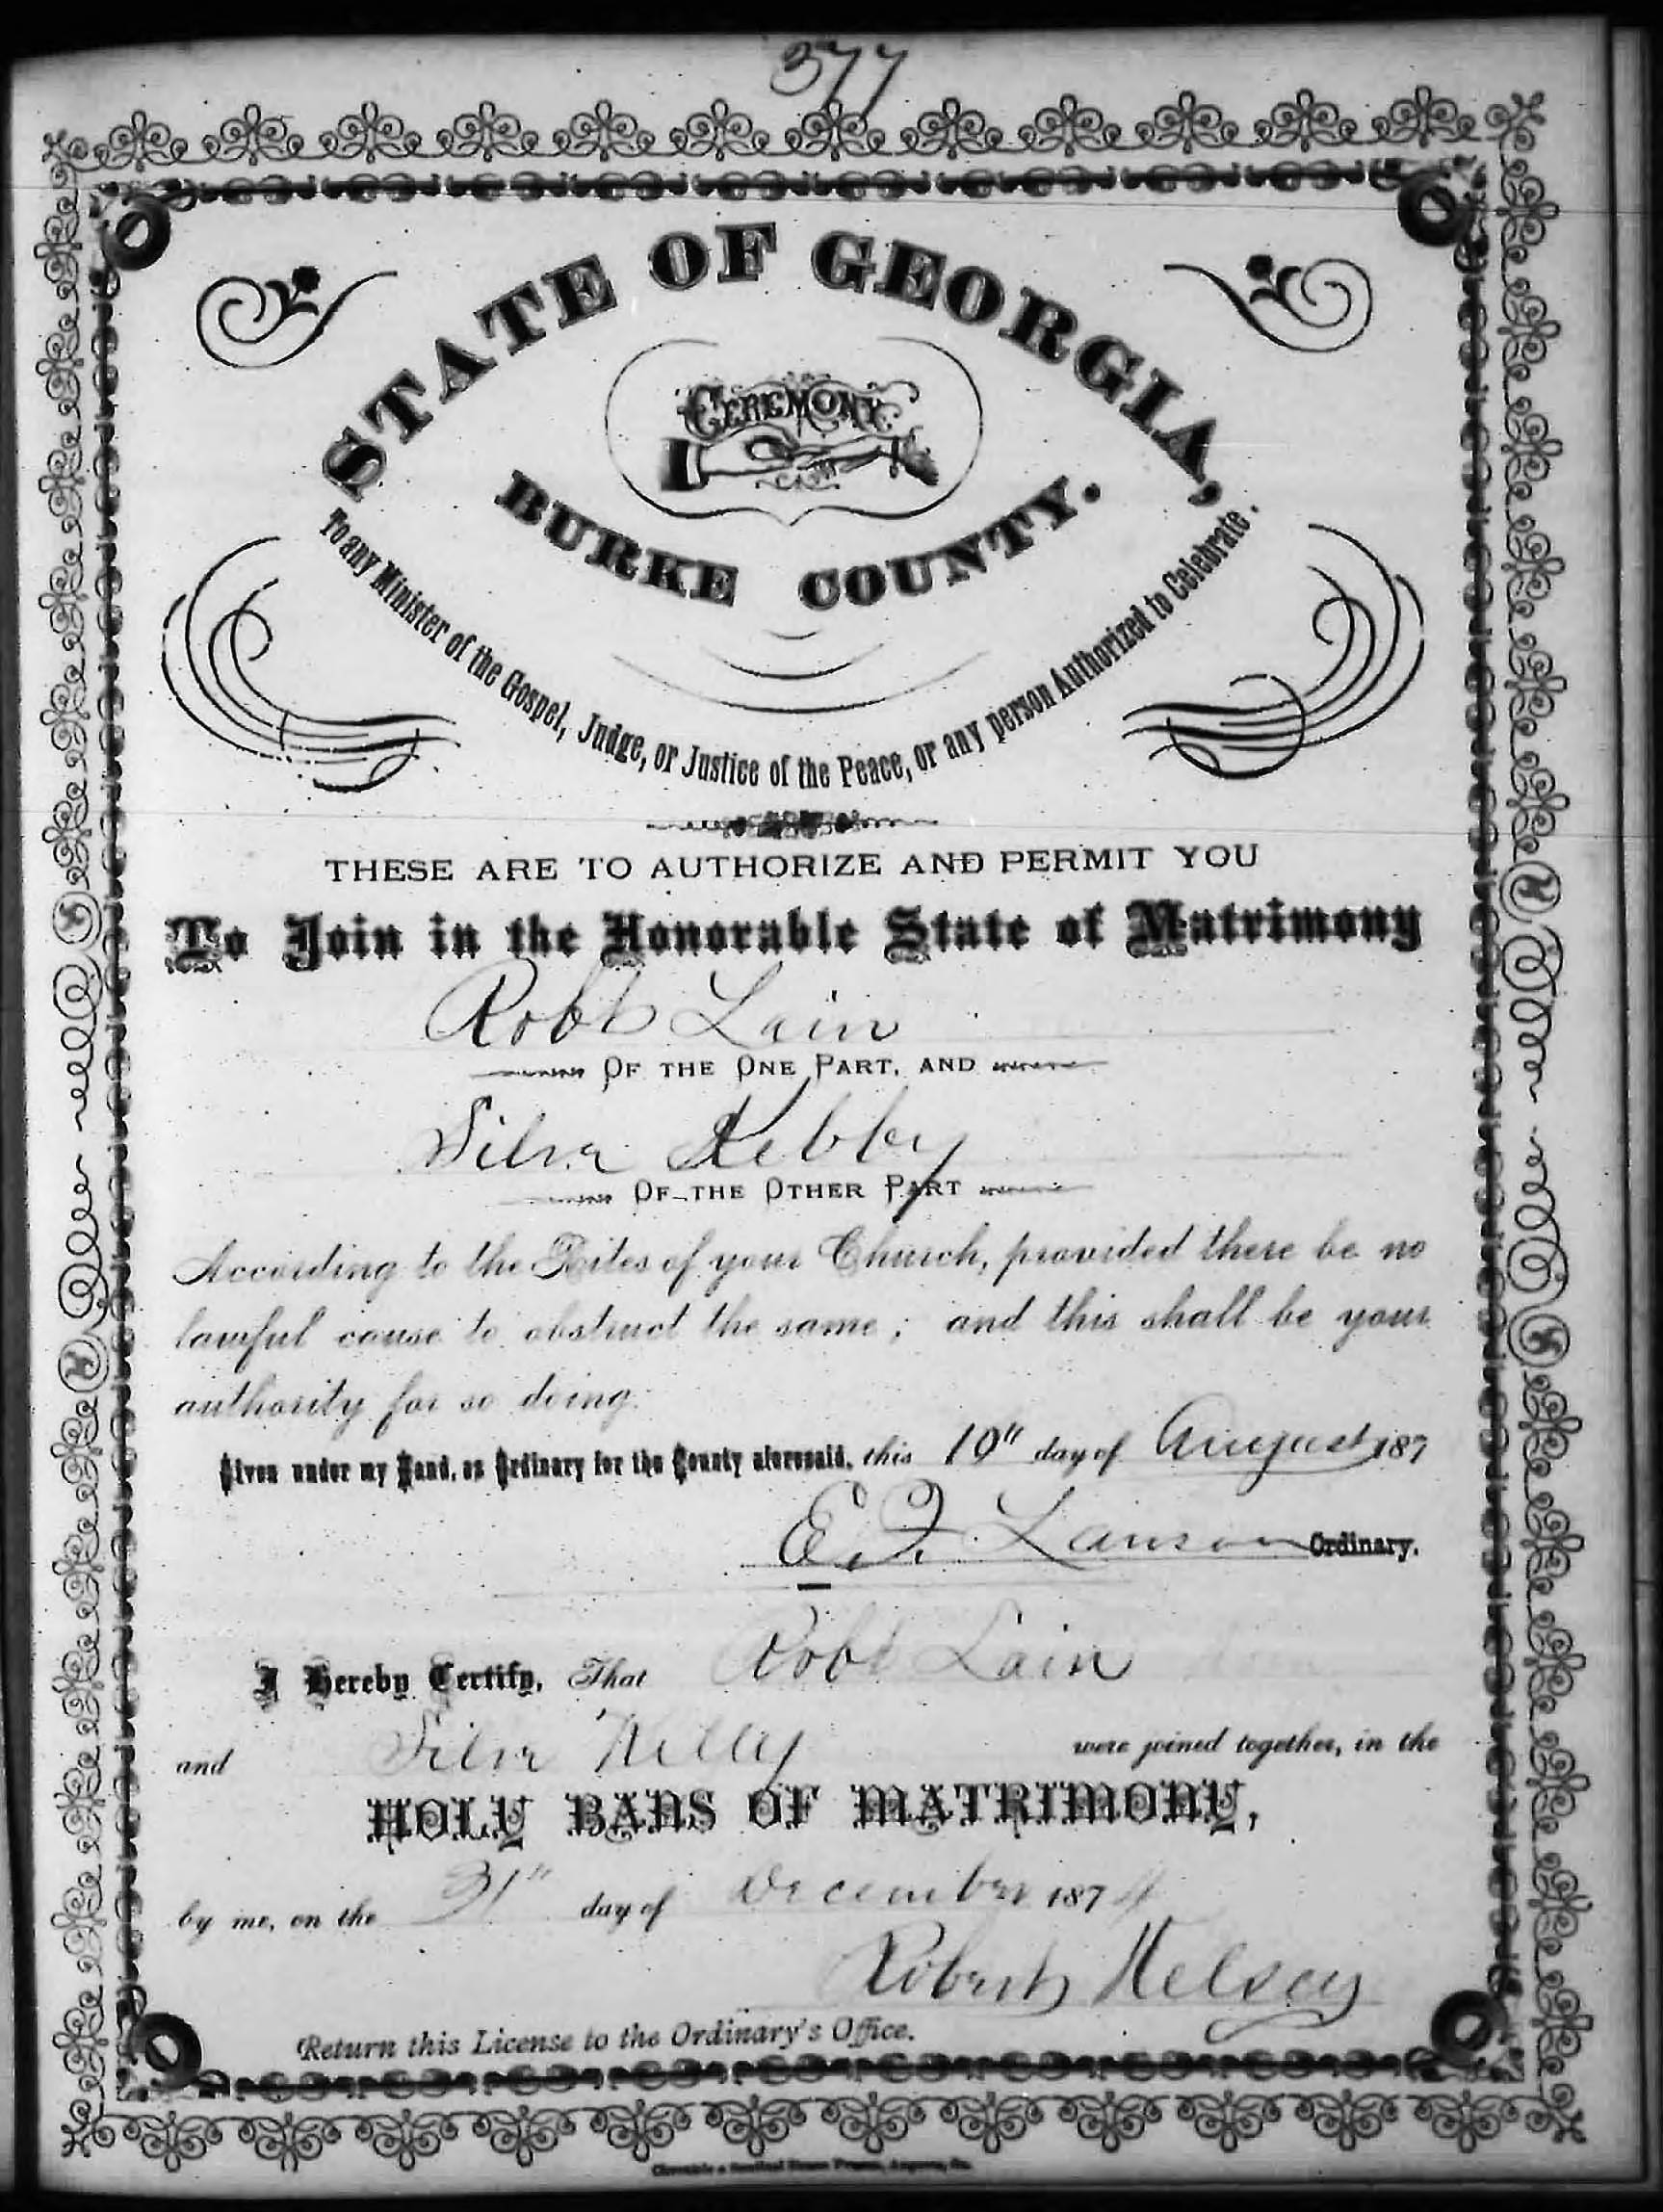 377
STATE OF GEORGIA,
CEREMONY
BURKE COUNTY.
To any Minister of the Gospel, Judge, or Justice of the Peace, or any person Authorized to Celebrate.
THESE ARE TO AUTHORIZE AND PERMIT YOU
To Join in the Honorable State of Matrimony
Robt Lain
OF THE ONE PART, AND
Silva Kebby
OF THE OTHER PART
According to the Rites of your Church, provided there be no
lawful cause to obstruct the same; and this shall be your
authority for so doing.
Given under my Hand, as Ordinary for the County aforesaid, this 10" day of August 187
E. F. Lawson Ordinary.
I Hereby Certify, That Robt Lain
and Silva were joined together, in the
HOLY BANS OF MATRIMONY,
by me, on the 31" day of December 1874
Robert Kelsey
Return this License to the Ordinary's Office.